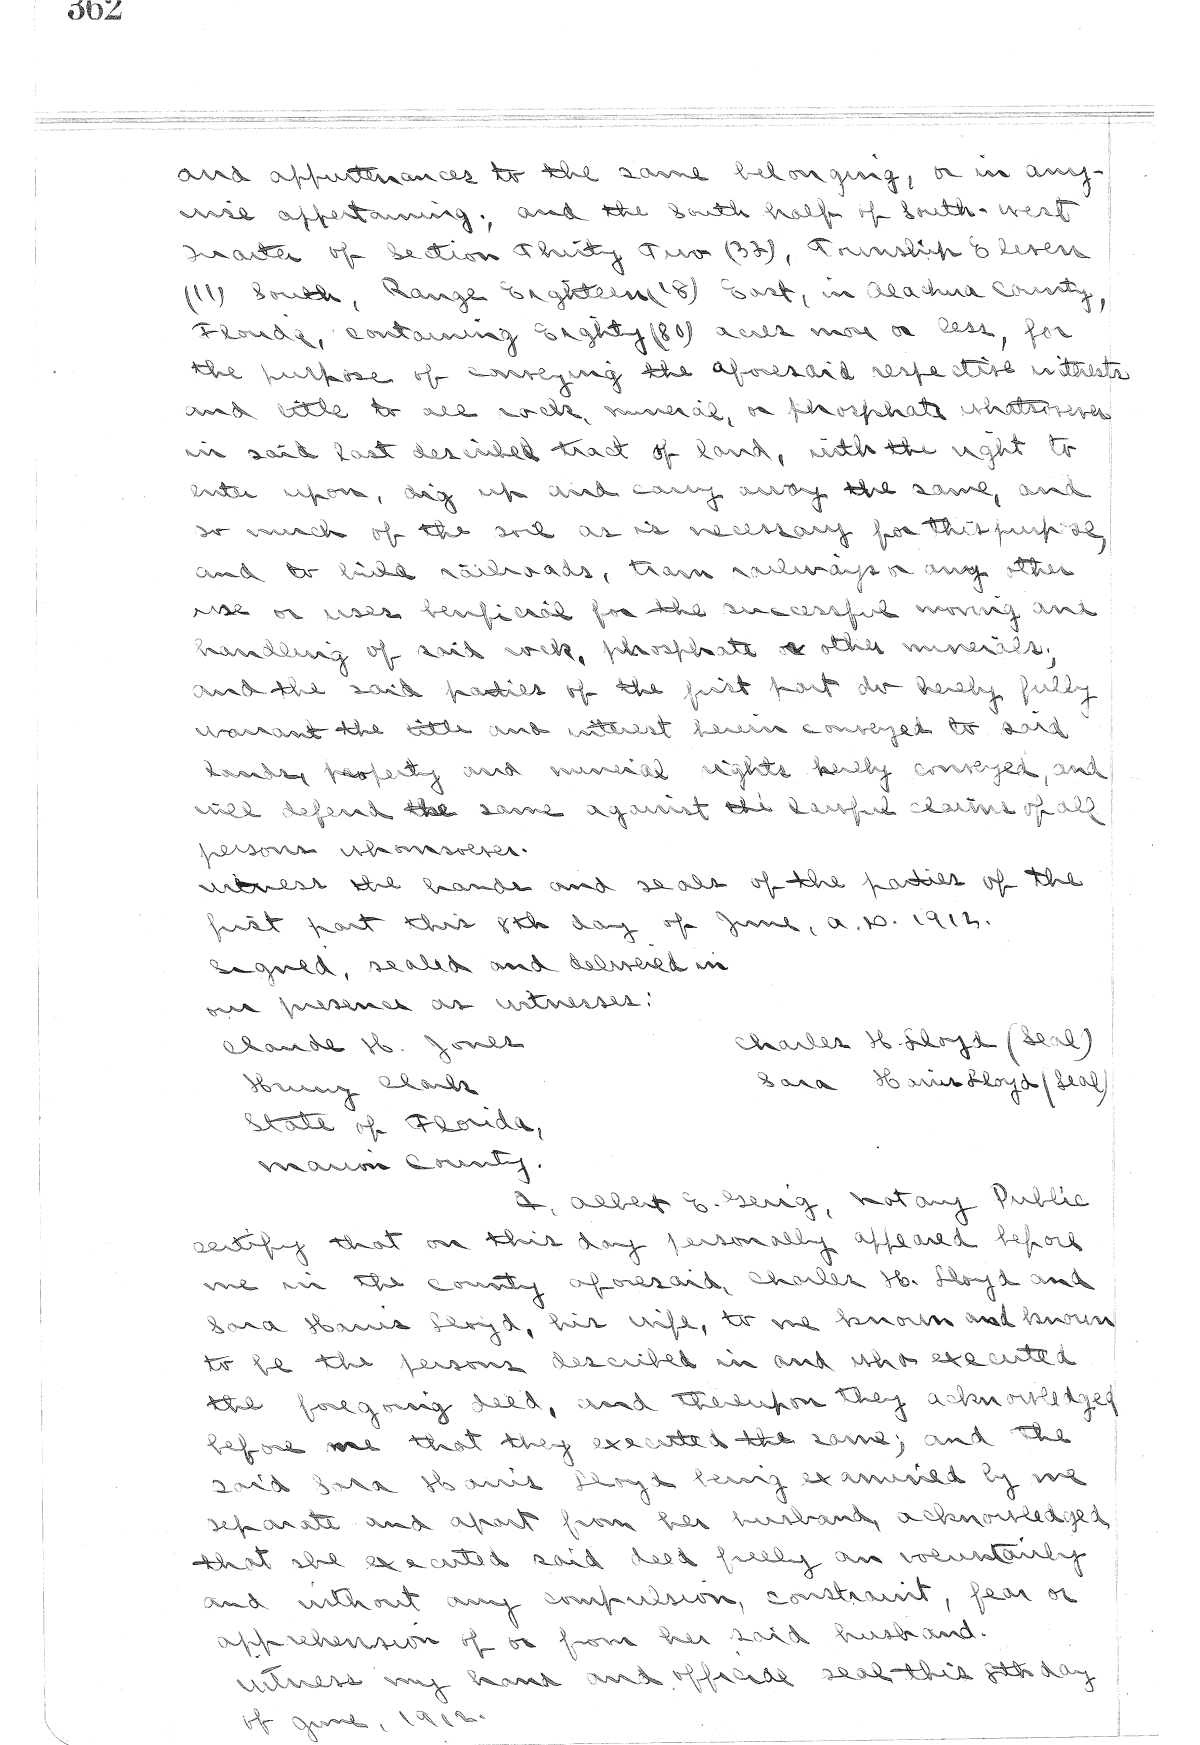 362
and appurtenances to the same belonging, or in any-
wise appertaining; and the South half of South-west
Quarter of Section Thirty Two (32), Township Eleven
(11) South, Range Eighteen (18) East, in Alachua County,
Florida, containing Eighty (80) acres more or less, for
the purpose of conveying the aforesaid respective interests
and title to all rock, mineral, or phosphate whatsoever
in said last described tract of land, with the right to
enter upon, dig up and carry away the same, and
so much of the soil as is necessary for this purpose,
and to build railroads, tram railways or any other
use or uses benficial for the successful moving and
handling of said rock, phosphate or other minerals;
and the said parties of the first part do hereby fully
warrant the title and interest herein conveyed to said
lands, property and mineral rights hereby conveyed, and
will defend the same against the lawful claims of all
persons whomsoever.
Witness the hands and seals of the parties of the
first part this 8th day of June, A.D. 1912.
Signed, sealed and delivered in
our presence as witnesses:
Claude H. Jones Charles H. Lloyd (Seal)
Henry Clark Sara Harris Lloyd (Seal)
State of Florida,
Marion County.
I, Albert E. Gerig, Notary Public
certify that on this day personally appeared before
me in the county aforesaid, Charles H. Lloyd and
Sara Harris Lloyd, his wife, to me known and known
to be the persons described in and who executed
the foregoing deed, and thereupon they acknowledged
before me that they executed the same; and the
said Sara Harris Lloyd being examined by me
separate and apart from her husband, acknowledged
that she executed said deed freely an voluntarily
and without any compulsion, constraint, fear or
apprehension of or from her said husband.
Witness my hand and official seal this 8th day
of June, 1912.